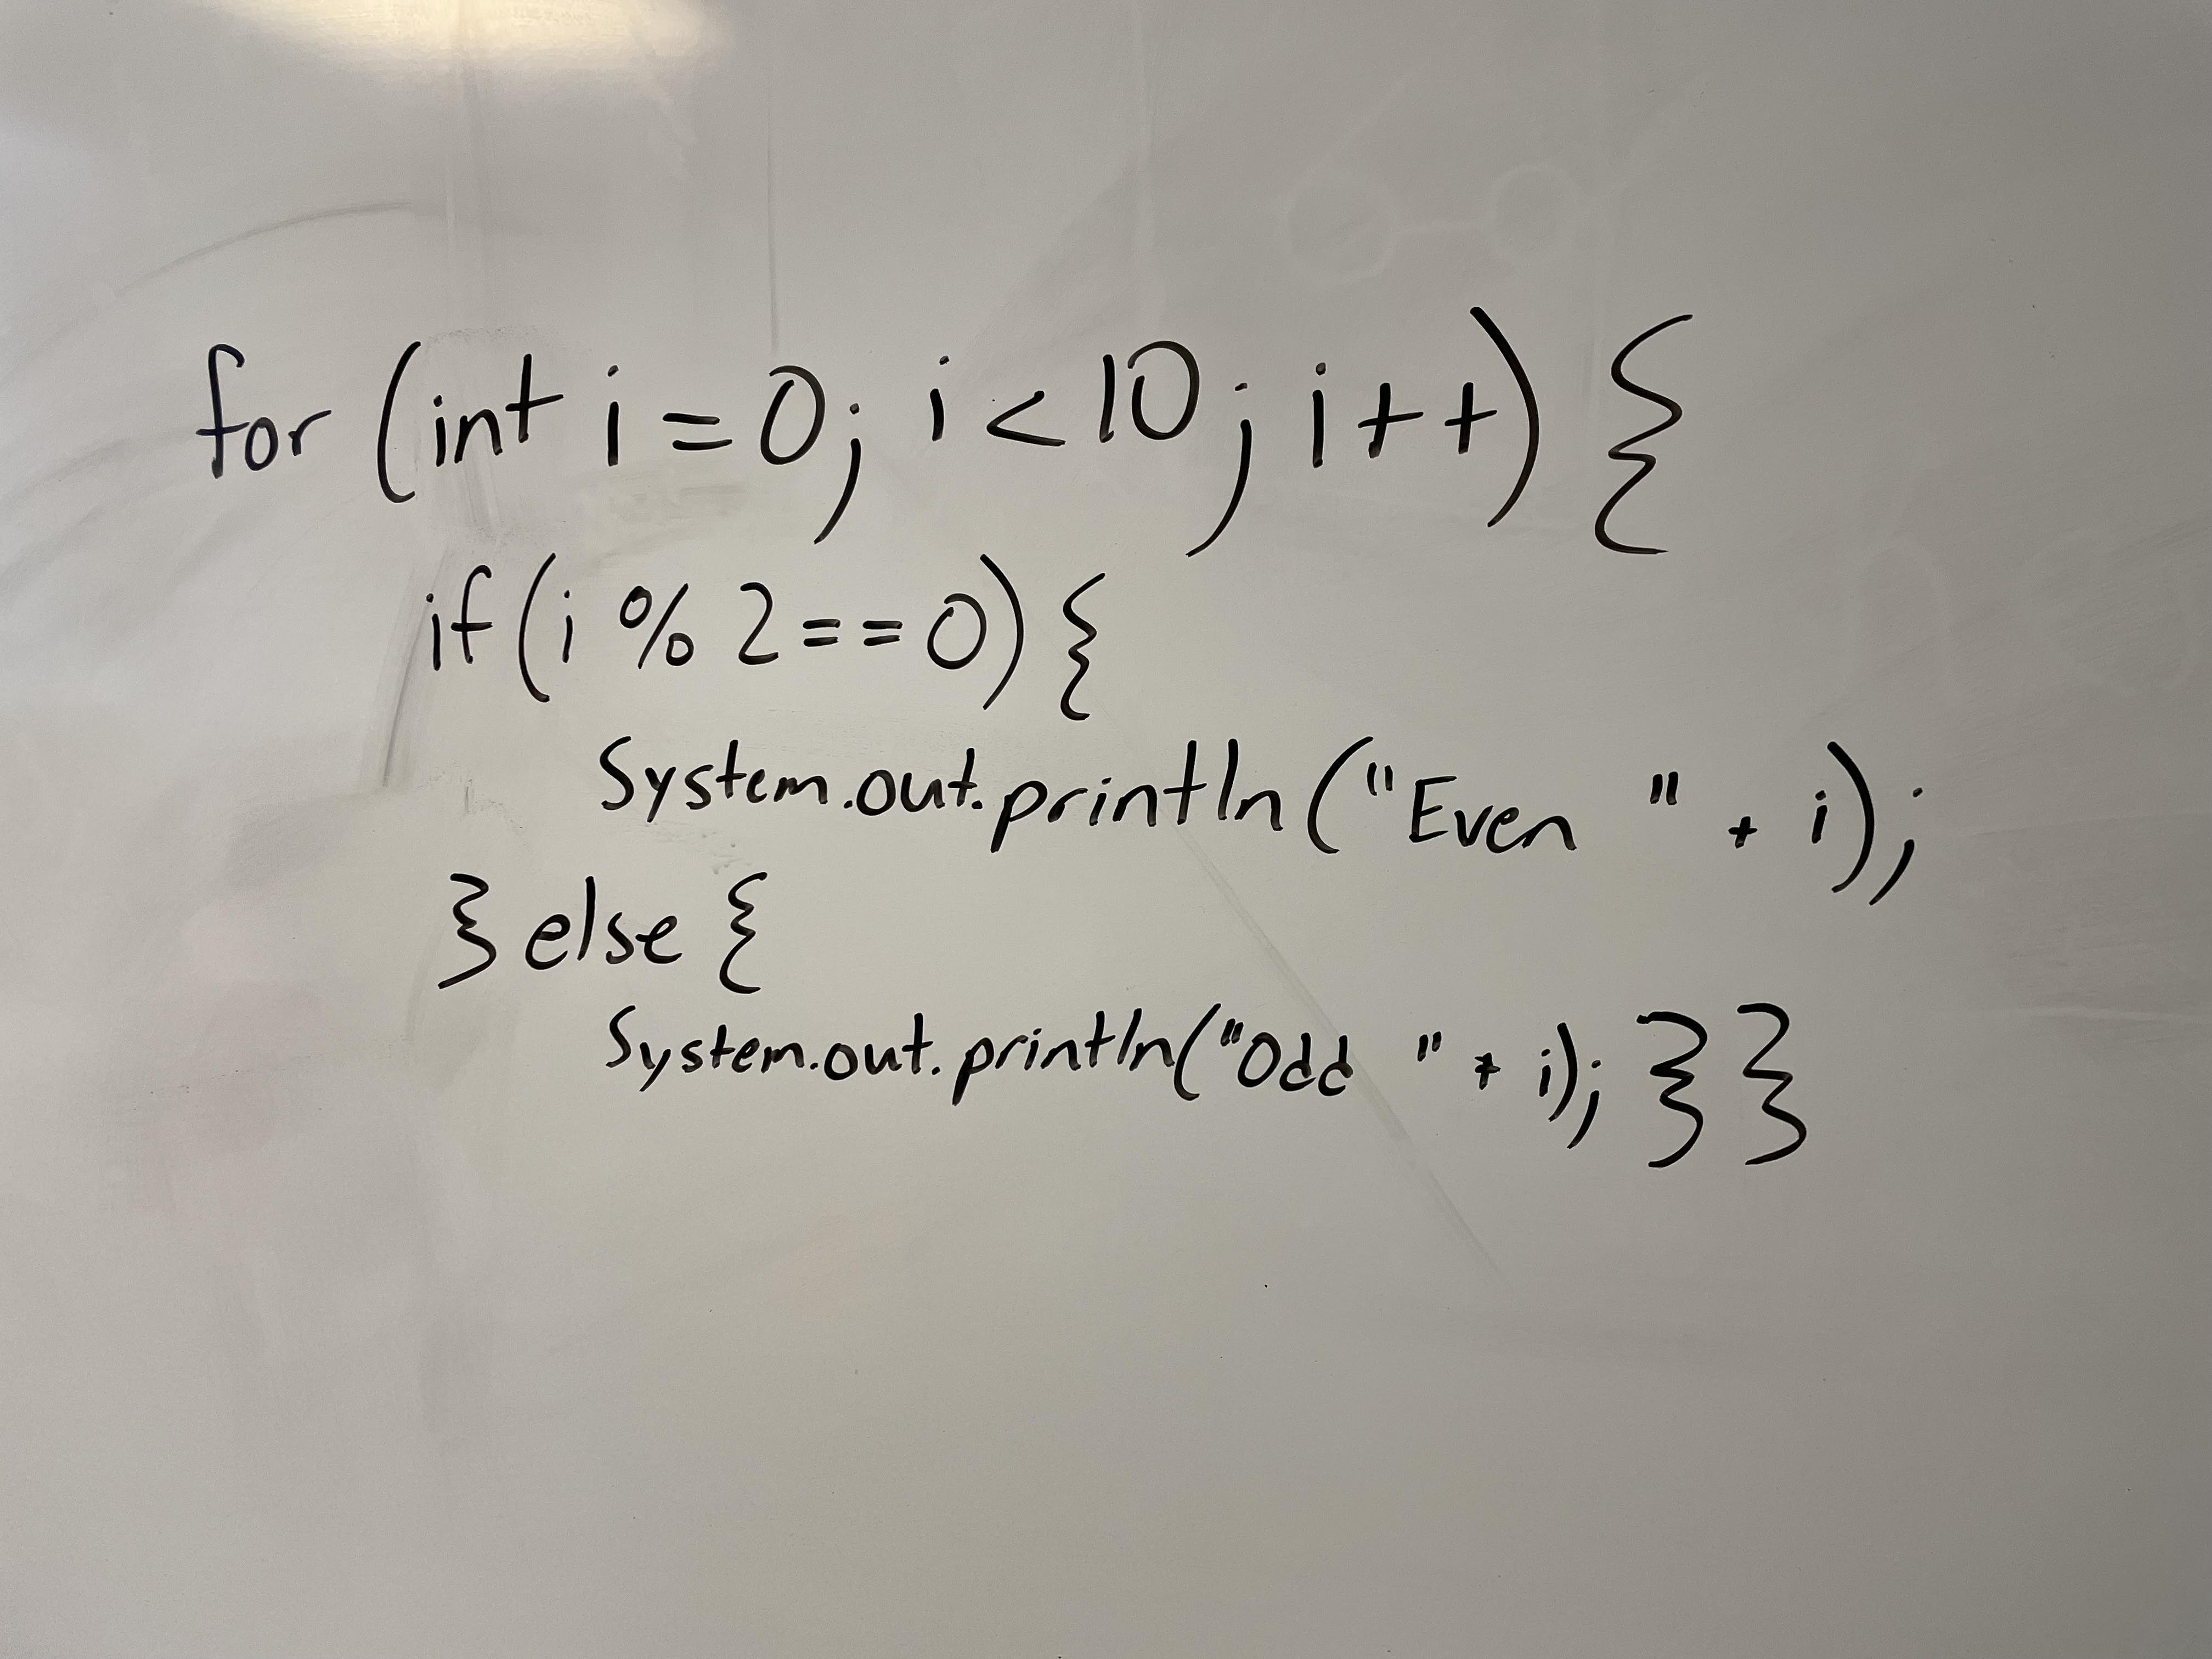 for (int i = 0; i < 10; i++) {
if (i % 2 == 0) {
System.out.println("Even " + i);
} else {
System.out.println("Odd " + i); } }